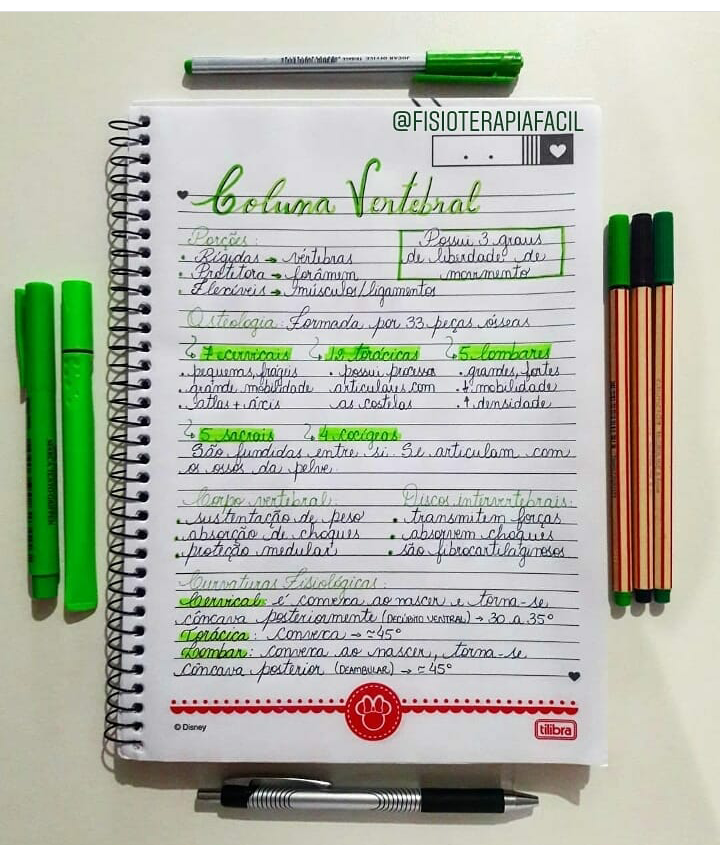 @FISIOTERAPIAFACIL
Coluna Vertebral
Porções:
• Rígidas → vértebras
• Protetora → forâmem
• Flexíveis → músculos/ligamentos
Possui 3 graus
de liberdade de
movimento
Osteologia: Formada por 33 peças ósseas
↳ 7 cervicais
• pequenas, frágeis
• grande mobilidade
• atlas + áxis
↳ 12 torácicas
• possui processos
articulares com
as costelas
↳ 5 lombares
• grandes, fortes
• ↓ mobilidade
• ↑ densidade
↳ 5 sacrais ↳ 4 cocígeas
São fundidas entre si. Se articulam com
os ossos da pelve.
Corpo vertebral:
• sustentação de peso
• absorção de choques
• proteção medular
Discos intervertebrais:
• transmitem forças
• absorvem choques
• são fibrocartilaginosos
Curvaturas Fisiológicas:
Cervical: é convexa ao nascer e torna-se
côncava posteriormente (DECÚBITO VENTRAL) → 30 a 35°
Torácica: convexa → ≃45°
Lombar: convexa ao nascer, torna-se
côncava posterior (DEAMBULAR) → ≃45°
© Disney
tilibra